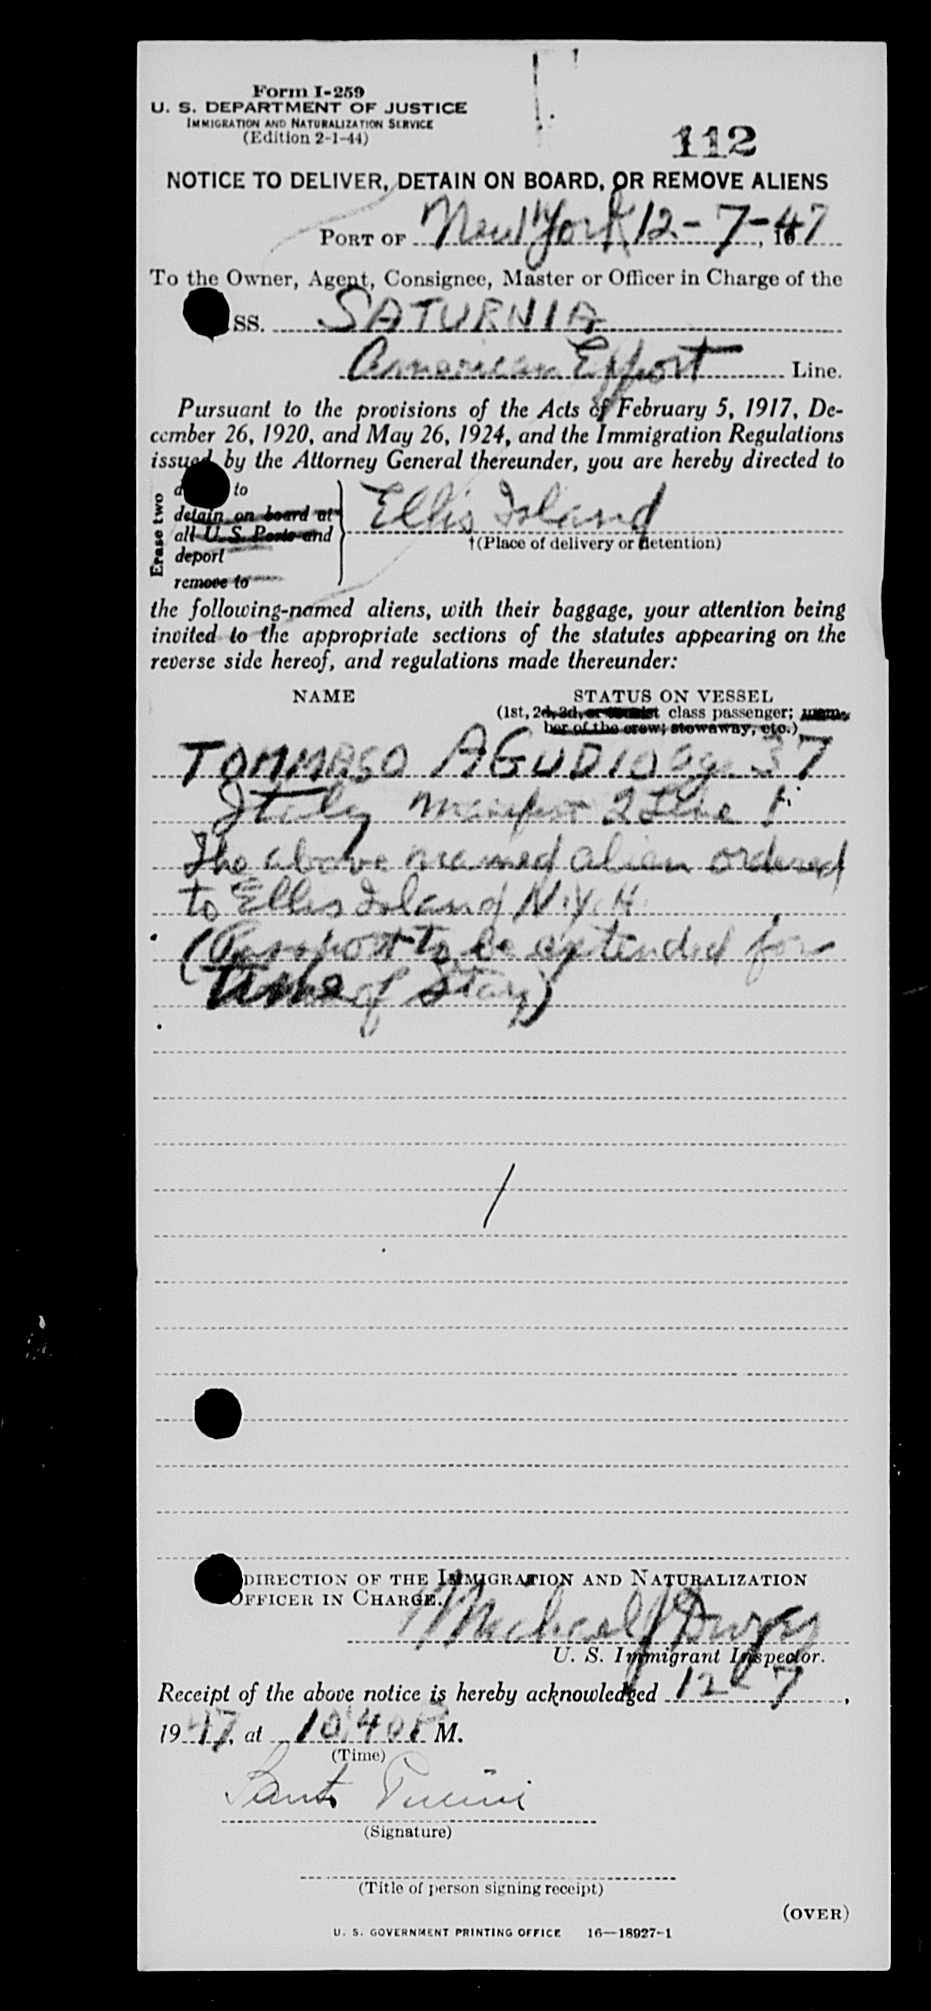 Form I-259
U. S. DEPARTMENT OF JUSTICE
IMMIGRATION AND NATURALIZATION SERVICE
(Edition 2-1-44)
112
NOTICE TO DELIVER, DETAIN ON BOARD, OR REMOVE ALIENS
PORT OF New York 12-7-, 1947
To the Owner, Agent, Consignee, Master or Officer in Charge of the
SS. SATURNIA
American Export Line.
Pursuant to the provisions of the Acts of February 5, 1917, De-
cember 26, 1920, and May 26, 1924, and the Immigration Regulations
issued by the Attorney General thereunder, you are hereby directed to
Erase two
to
detain on board at
all U. S. Ports and
deport
remove to
Ellis Island
†(Place of delivery or detention)
the following-named aliens, with their baggage, your attention being
invited to the appropriate sections of the statutes appearing on the
reverse side hereof, and regulations made thereunder:
NAME STATUS ON VESSEL
(1st, 2d, 3d, or tourist class passenger; mem-
ber of the crew; stowaway, etc.)
TOMMASO AGUDIO ag. 37
Italy Manifest 2 Line 1
The above named alien ordered
to Ellis Island N.Y.H.
(Passport to be extended for
Time of Stay)
DIRECTION OF THE IMMIGRATION AND NATURALIZATION
OFFICER IN CHARGE.
Michael J
U. S. Immigrant Inspector.
Receipt of the above notice is hereby acknowledged 12-7,
1947, at 10:40 P M.
(Time)
(Signature)
(Title of person signing receipt)
(OVER)
U. S. GOVERNMENT PRINTING OFFICE 16—18927-1